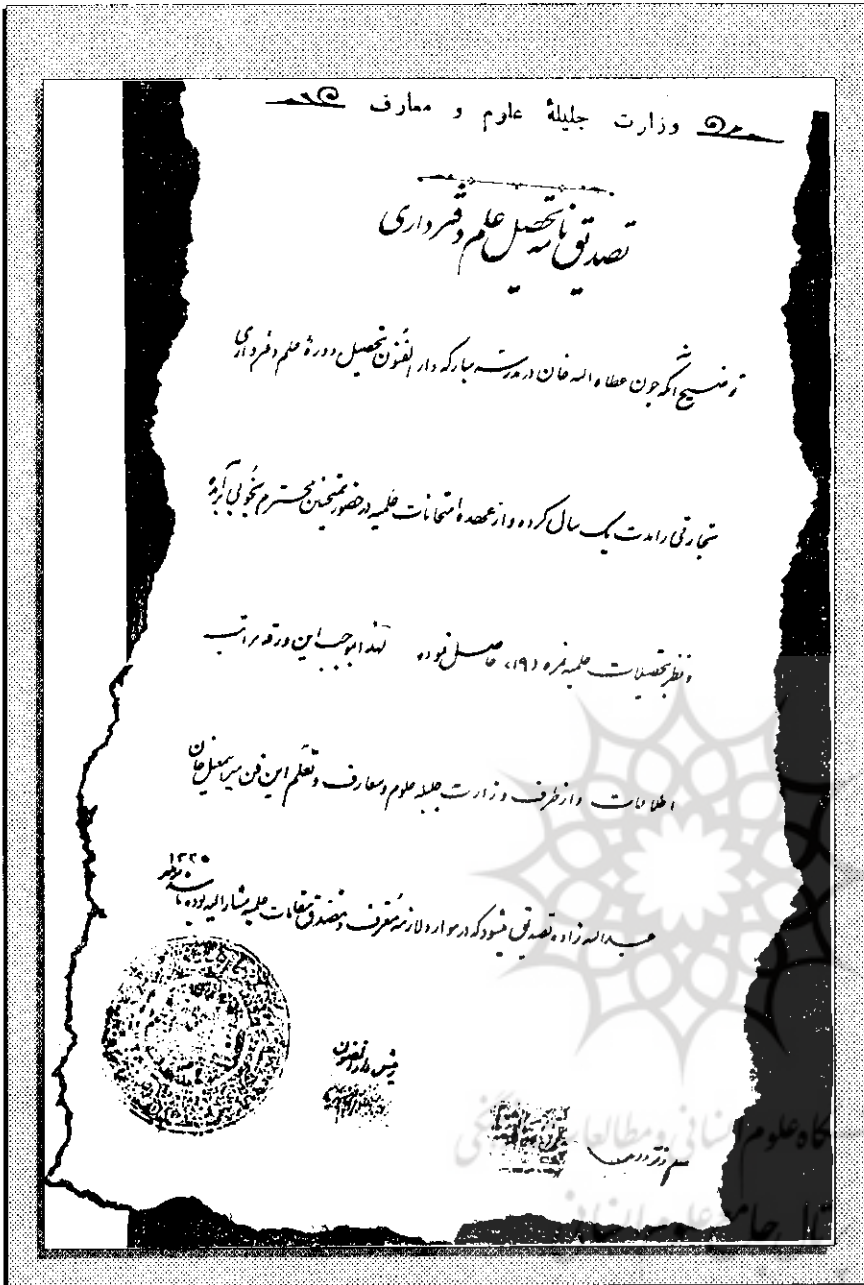 وزارت جلیلهٔ علوم و معارف
تصدیق نامه تحصیل علم دفترداری
توضیح آنکه چون عطاء اله خان در مدرسه مبارکه دارالفنون تحصیل دورهٔ علم دفترداری
تجارتی را مدت یک سال کرده و از عهدهٔ امتحانات علمیه در حضور ممتحنین محترم بخوبی برآمده
و نظر بتحصیلات علمیه نمره (۱۹) حاصل نموده لهذا بموجب این ورقه مراتب
اطلاعات و از طرف وزارت جلیله علوم و معارف و معلم این فن میر اسمعیل خان
عبداله زاده تصدیق میشود که در موارد لازمه معرف و مصدق مقامات علمیه مشارالیه بوده باشد
۱۳۳۵
رئیس دارالفنون
معلم دفترداری